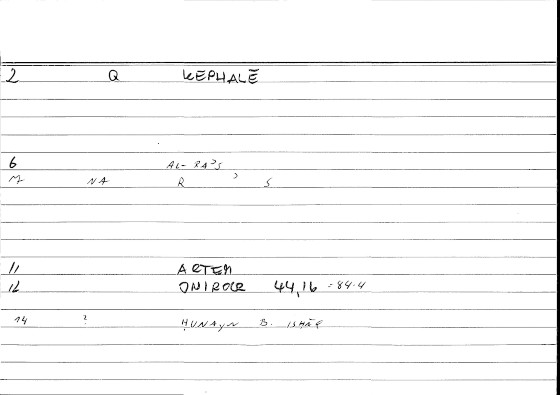 2 Q KEPHALĒ
6 AL-RAʾS
M NA R ʾ S
11 ARTEM
12 ONIROCR 44,16 = 84.4
14 ? ḤUNAYN B. ISḤĀQ